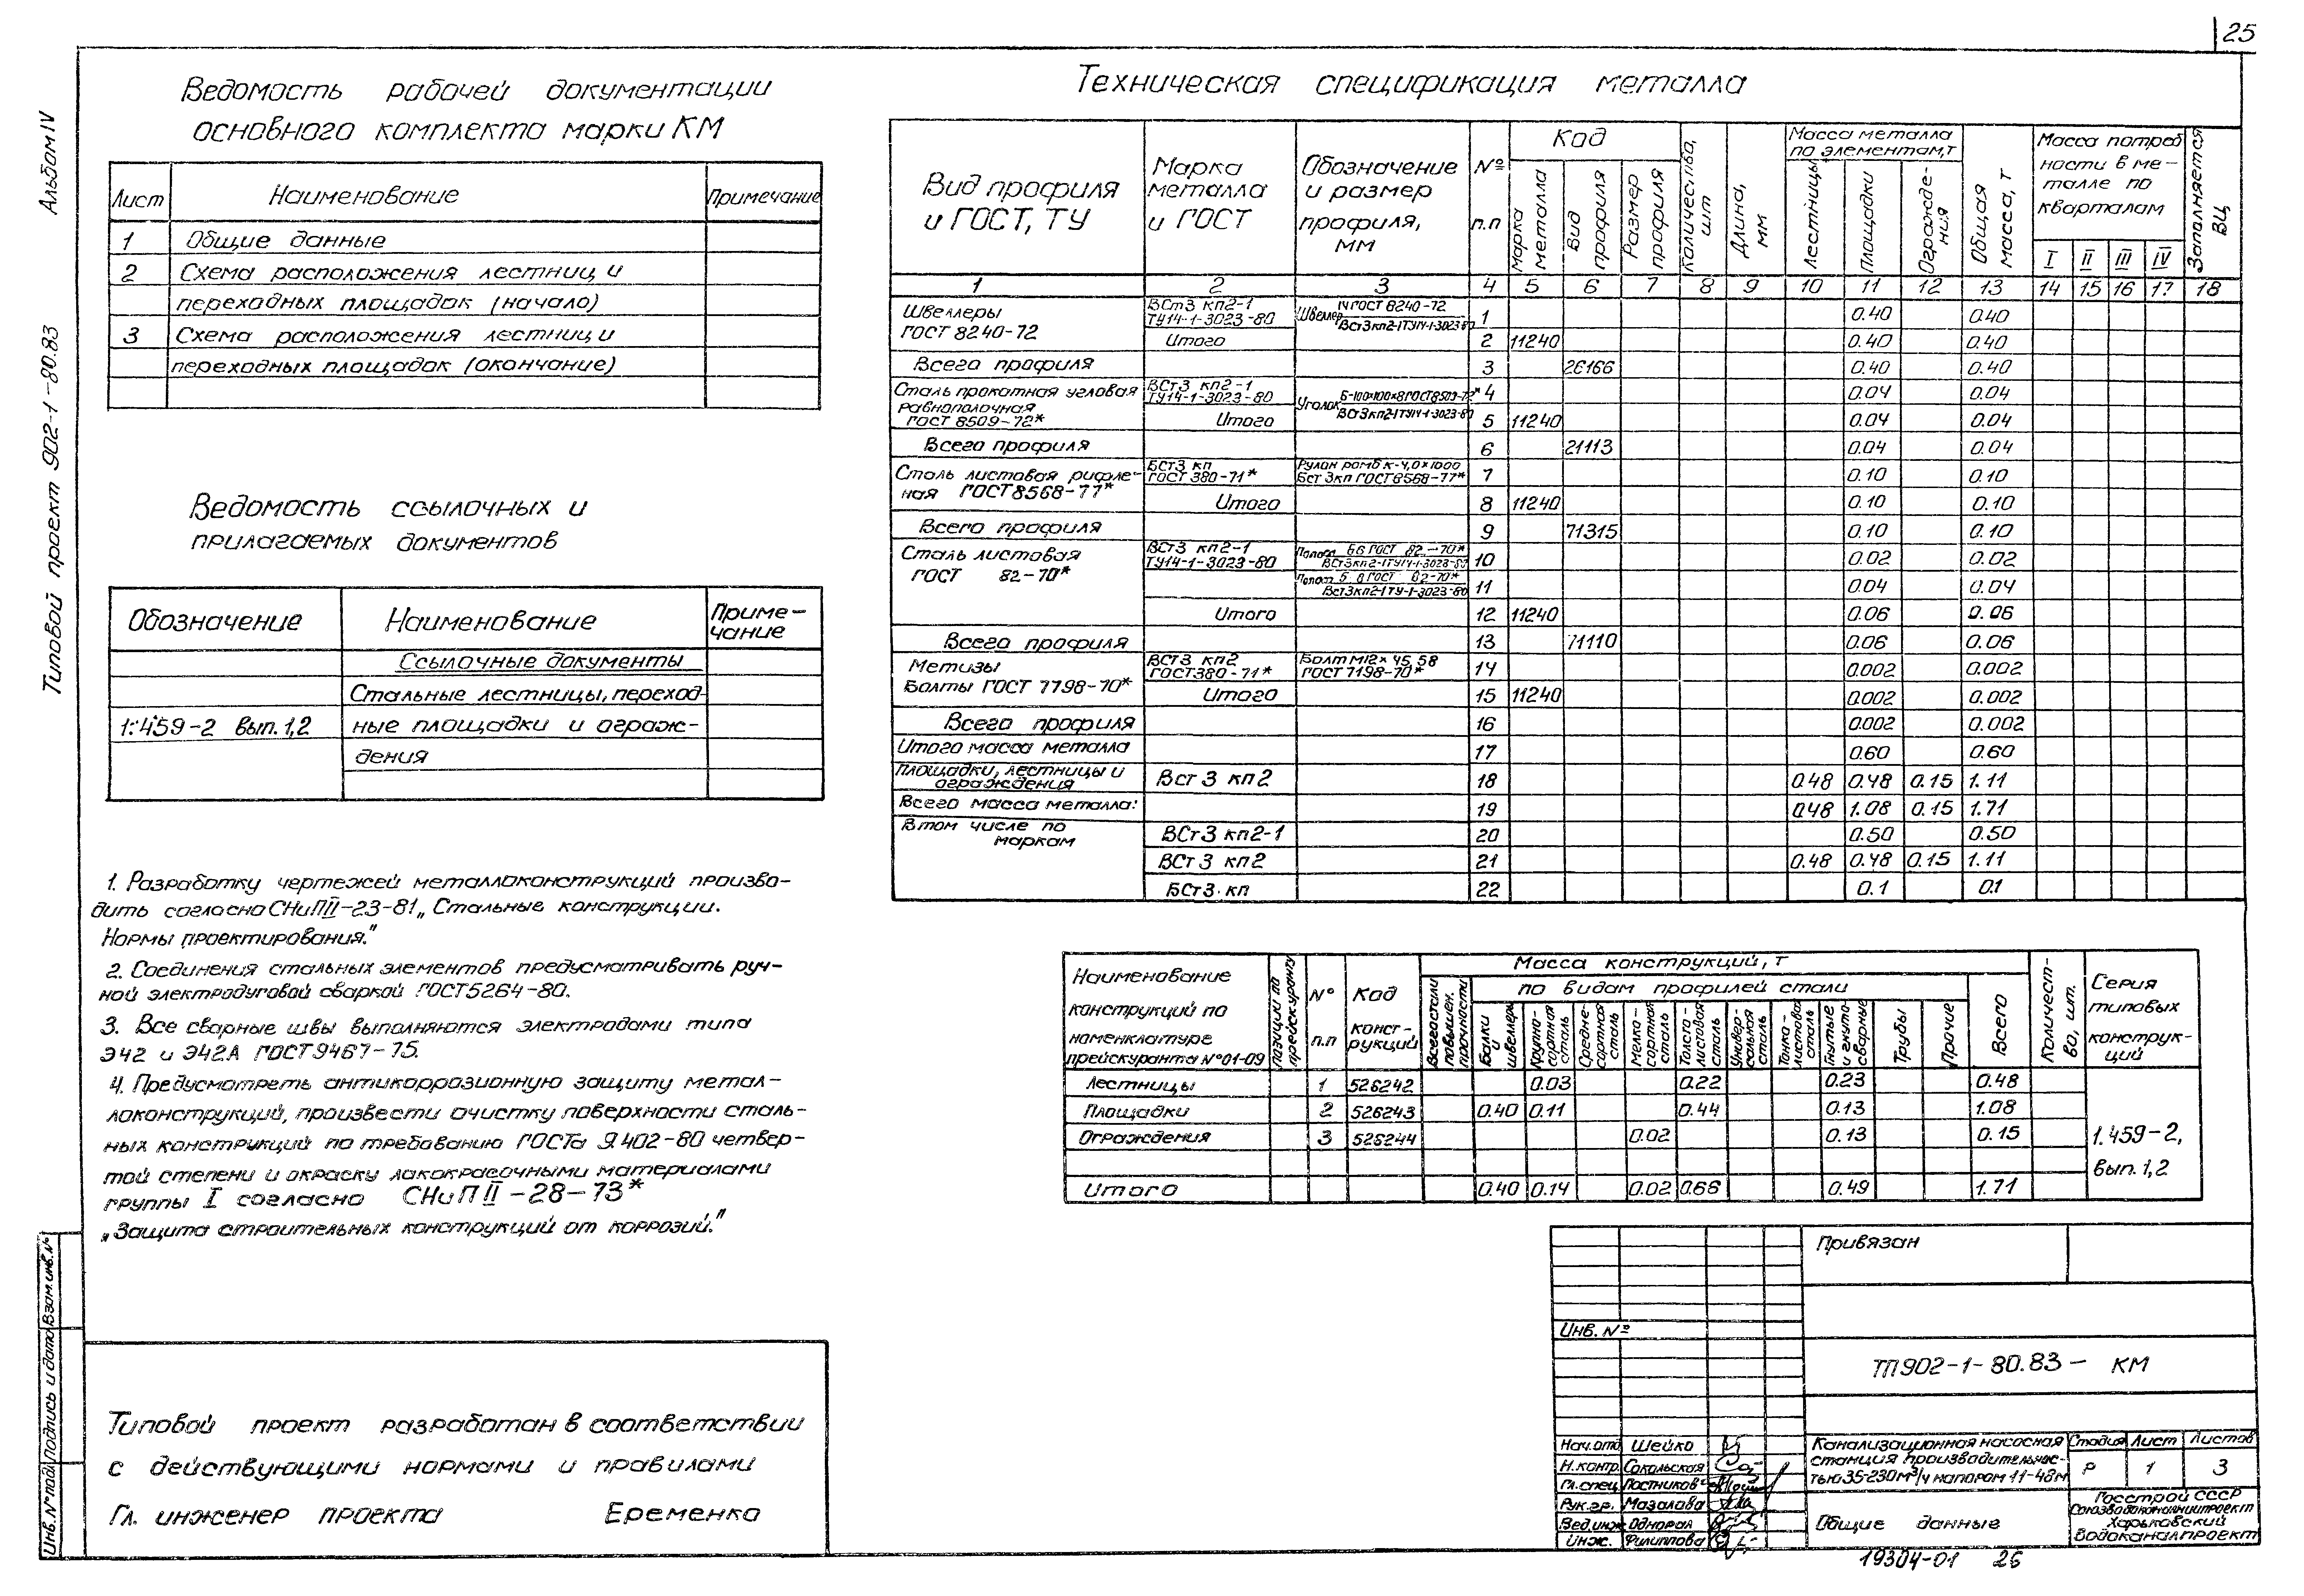 25
Альбом IV
Типовой проект 902-1-80.83
Ведомость рабочей документации
основного комплекта марки КМ
Лист Наименование Примечание
1 Общие данные
2 Схема расположения лестниц и
переходных площадок (начало)
3 Схема расположения лестниц и
переходных площадок (окончание)
Ведомость ссылочных и
прилагаемых документов
Обозначение Наименование Приме-
чание
Ссылочные документы
Стальные лестницы, переход-
1.459-2 вып. 1,2 ные площадки и ограж-
дения
1. Разработку чертежей металлоконструкций произво-
дить согласно СНиП II-23-81 „Стальные конструкции.
Нормы проектирования."
2. Соединения стальных элементов предусматривать руч-
ной электродуговой сваркой ГОСТ 5264-80.
3. Все сварные швы выполняются электродами типа
Э42 и Э42А ГОСТ 9467-75.
4. Предусмотреть антикоррозионную защиту метал-
локонструкций, произвести очистку поверхности сталь-
ных конструкций по требованию ГОСТа 9.402-80 четвер-
той степени и окраску лакокрасочными материалами
группы I согласно СНиП II-28-73*
„Защита строительных конструкций от коррозий."
Типовой проект разработан в соответствии
с действующими нормами и правилами
Гл. инженер проекта Еременко
Инв. № подл. Подпись и дата Взам. инв. №
Техническая спецификация металла
Вид профиля и ГОСТ, ТУ
Марка металла и ГОСТ
Обозначение и размер профиля, мм
№ п.п
Код
Марка металла
Вид профиля
Размер профиля
Количество, шт
Длина, мм
Масса металла по элементам, т
Лестницы
Площадки
Огражде-
ния
Общая масса, т
Масса потреб
ности в ме-
талле по
кварталам
I II III IV
Заполняется ВЦ
1 2 3 4 5 6 7 8 9 10 11 12 13 14 15 16 17 18
Швеллеры ВСт3 кп2-1 ГОСТ 8240-72
ГОСТ 8240-72 ТУ14-1-3023-80 Швеллер ВСт3кп2-1ТУ14-1-3023-80 1 0.40 0.40
Итого 2 11240 0.40 0.40
Всего профиля 3 26166 0.40 0.40
Сталь прокатная угловая ВСт3 кп2-1 Б-100×100×8 ГОСТ 8509-72* 4 0.04 0.04
равнополочная ТУ14-1-3023-80 Уголок ВСт3кп2-1ТУ14-1-3023-80
ГОСТ 8509-72* Итого 5 11240 0.04 0.04
Всего профиля 6 21113 0.04 0.04
Сталь листовая рифле- БСт3 кп Рулон ромб К-4,0×1000 7 0.10 0.10
ная ГОСТ 8568-77* ГОСТ 380-71* Бст3кп ГОСТ 8568-77*
Итого 8 11240 0.10 0.10
Всего профиля 9 71315 0.10 0.10
Сталь листовая ВСт3 кп2-1 Полоса Б6 ГОСТ 82-70* 10 0.02 0.02
ГОСТ 82-70* ТУ14-1-3023-80 ВСт3кп2-1ТУ14-1-3023-80
Полоса Б 8 ГОСТ 82-70* 11 0.04 0.04
Вст3кп2-1ТУ-1-3023-80
Итого 12 11240 0.06 0.06
Всего профиля 13 71110 0.06 0.06
Метизы ВСТ3 кп2 Болт М12×45.58 14 0.002 0.002
Болты ГОСТ 7798-70* ГОСТ380-71* ГОСТ 7798-70*
Итого 15 11240 0.002 0.002
Всего профиля 16 0.002 0.002
Итого масса металла 17 0.60 0.60
Площадки, лестницы и
ограждения Вст 3 кп2 18 0.48 0.48 0.15 1.11
Всего масса металла: 19 0.48 1.08 0.15 1.71
В том числе по
маркам ВСт3 кп2-1 20 0.50 0.50
ВСт 3 кп2 21 0.48 0.48 0.15 1.11
БСт3 кп 22 0.1 0.1
Наименование
конструкций по
номенклатуре
прейскуранта №01-09
Позиции по прейскуранту
№ п.п
Код конст-
рукций
Масса конструкций, т
по видам профилей стали
Всего стали повышен. прочности
Балки и швеллеры
Крупно-
сортная сталь
Средне-
сортная сталь
Мелко-
сортная сталь
Толсто-
листовая сталь
Универ-
сальная сталь
Тонко-
листовая сталь
Гнутые и гнуто-
сварные
Трубы
Прочие
Всего
Количест-
во, шт.
Серия
типовых
конструк-
ций
Лестницы 1 526242 0.03 0.22 0.23 0.48
Площадки 2 526243 0.40 0.11 0.44 0.13 1.08
Ограждения 3 526244 0.02 0.13 0.15
1.459-2,
вып. 1,2
Итого 0.40 0.14 0.02 0.66 0.49 1.71
Привязан
Инв. №
ТП902-1-80.83- КМ
Нач.отд Шейко
Н.контр. Сокольская
Гл.спец. Постников
Рук.гр. Мазалова
Вед.инж Однорал
Инж. Филиппова
Канализационная насосная
станция производительнос-
тью 35-230м³/ч напором 11-48м
Стадия Лист Листов
Р 1 3
Общие данные
Госстрой СССР
Союзводоканалниипроект
Харьковский
Водоканалпроект
19304-01 26